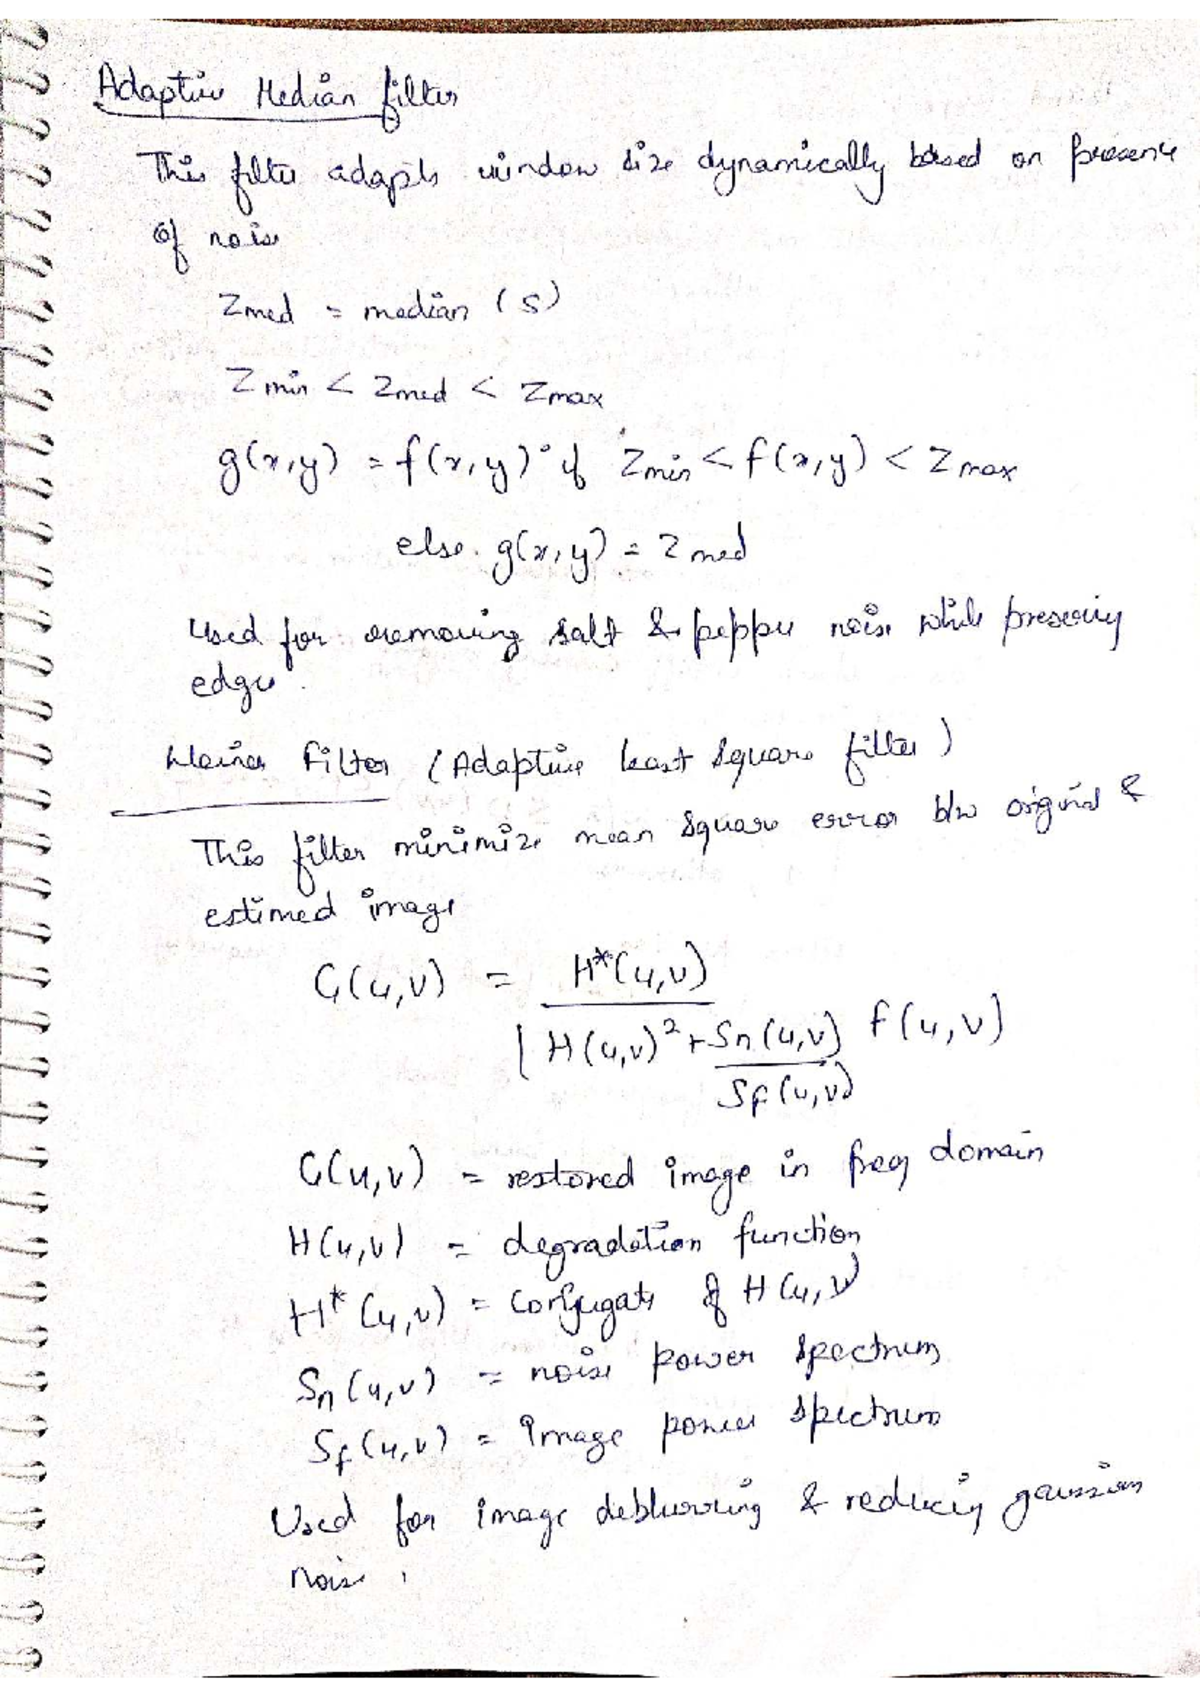 Adaptive Median filter
This filter adapts window size dynamically based on presence
of noise
Zmed = median (S)
Zmin < Zmed < Zmax
g(x,y) = f(x,y) if Zmin < f(x,y) < Zmax
else g(x,y) = Zmed
Used for removing salt & pepper noise while preserving
edge.
Weiner Filter (Adaptive least square filter)
This filter minimize mean square error b/w original &
estimed image
G(u,v) = H*(u,v) / |H(u,v)² + Sn(u,v) / Sf(u,v) F(u,v)
G(u,v) = restored image in freq domain
H(u,v) = degradation function
H*(u,v) = conjugate of H(u,v)
Sn(u,v) = noise power spectrum
Sf(u,v) = Image power spectrum
Used for image deblurring & reducing gaussian
noise.